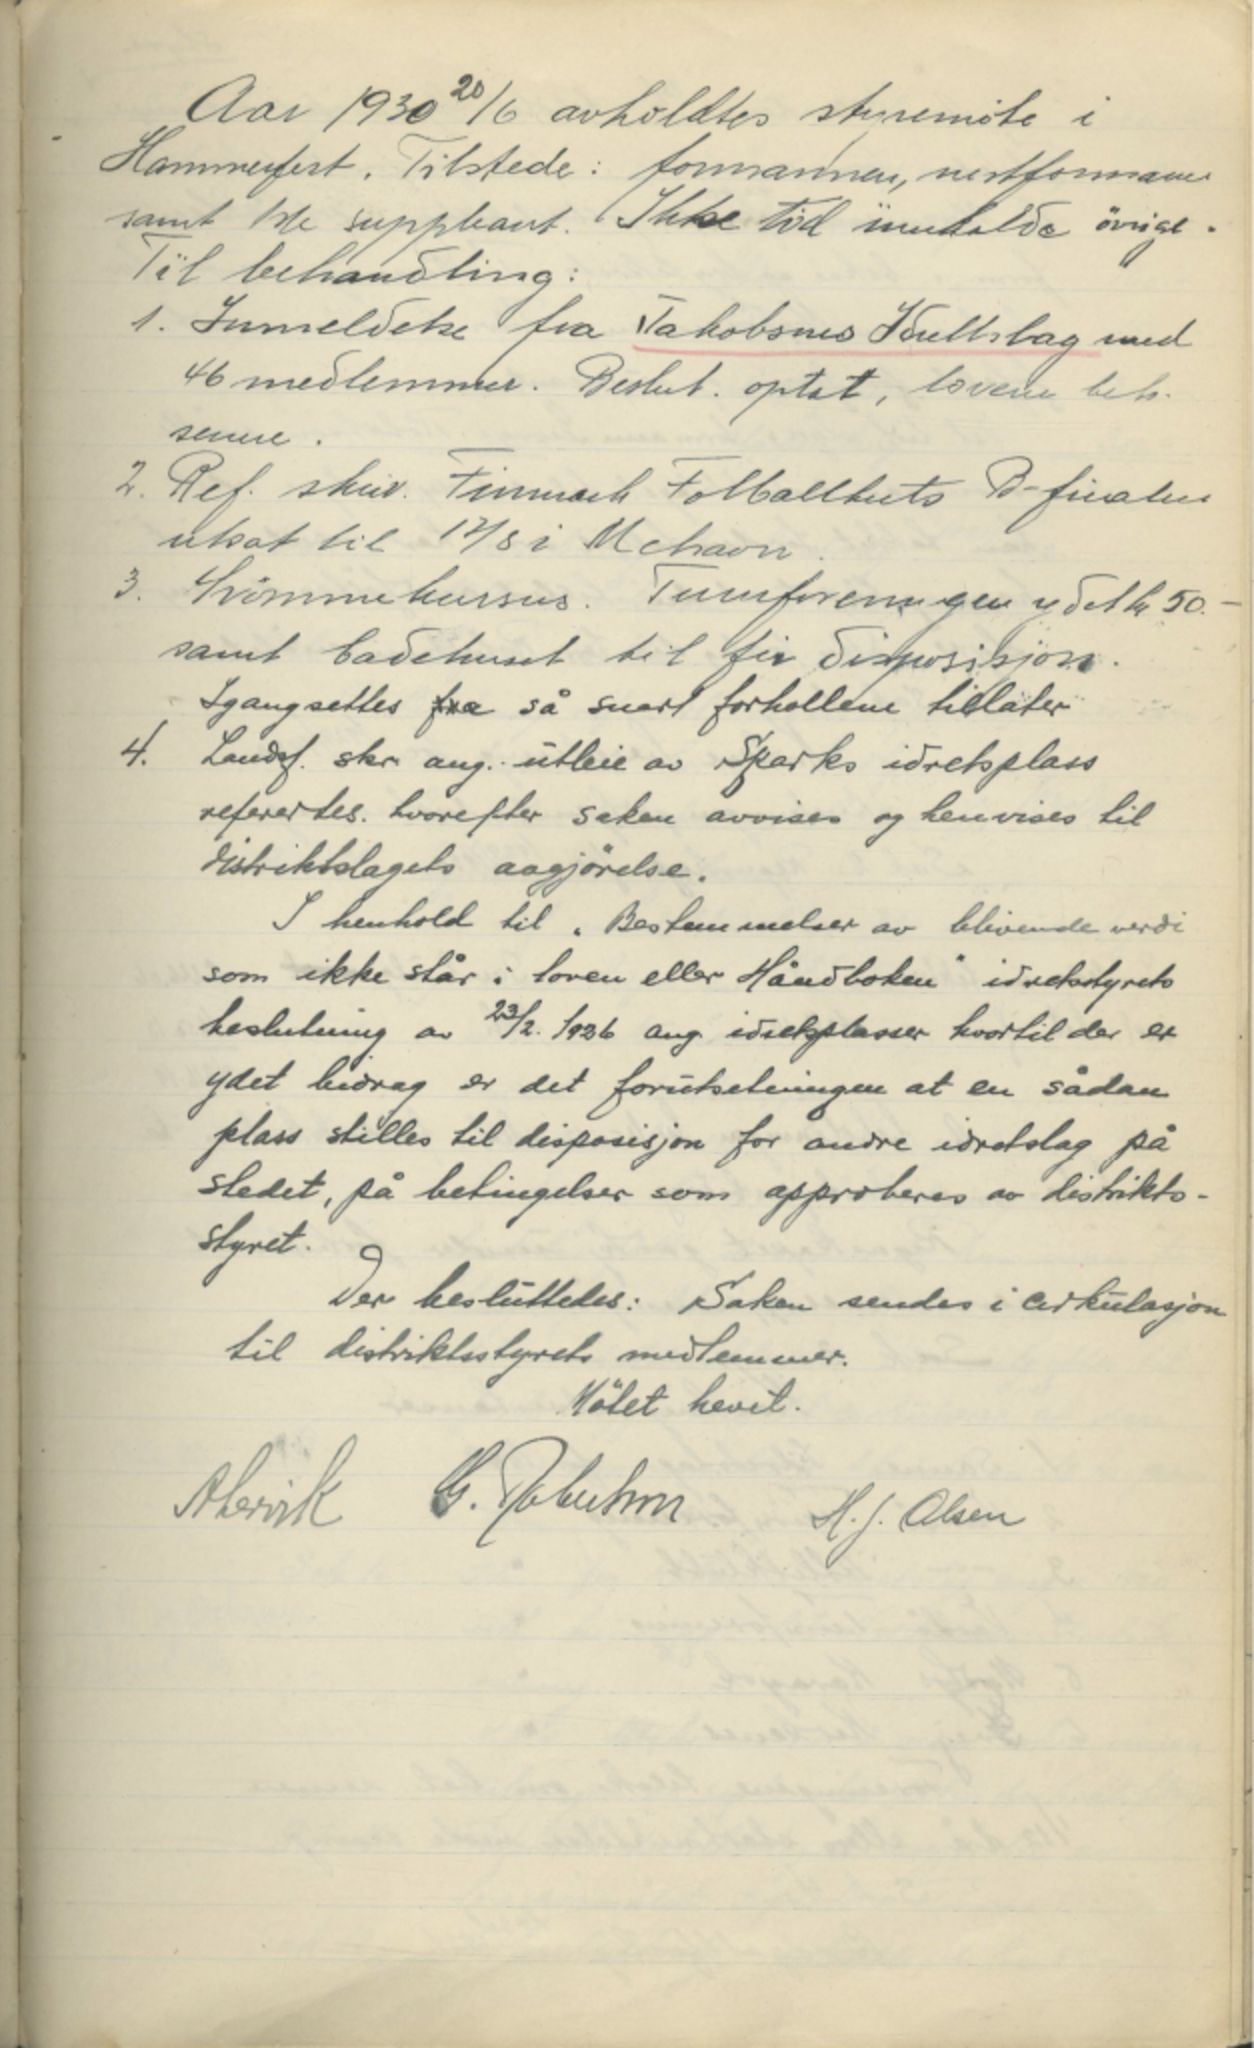 Aar 1930 20/6 avholdtes styremöte i
Hammerfest. Tilstede: formannen, nestformann
samt 1ste suppleant. Ikke tid innkalde övrige.
Til behandling:
1. Innmeldelse fra Jakobsnes Idrettslag med
46 medlemmer. Beslut. optat, lovene
senere.
2. Ref. skriv. Finnmark Fotballkrets B-finalen
utsat til 17/8 i Mehavn.
3. Svömmekursus. Turnforeningen ydet kr 50.-
samt badehuset til fri disposisjon.
Igangsettes fra så snart forhollene tillater
4. Landsf. skr. ang. utleie av Sparks idretsplass
referertes. hvorefter saken avvises og henvises til
distriktslagets avgjörelse.
I henhold til "Bestemmelser av blivende verdi
som ikke står i loven eller Håndboken" idretsstyrets
beslutning av 23/2. 1926 ang. idretsplasser hvortil der er
ydet bidrag er det forutsetningen at en sådan
plass stilles til disposisjon for andre idretslag på
stedet, på betingelser som approberes av distrikts-
styret.
Der besluttedes: Saken sendes i cirkulasjon
til distriktsstyrets medlemmer.
Mötet hevet.
G. Robertson H. J. Olsen